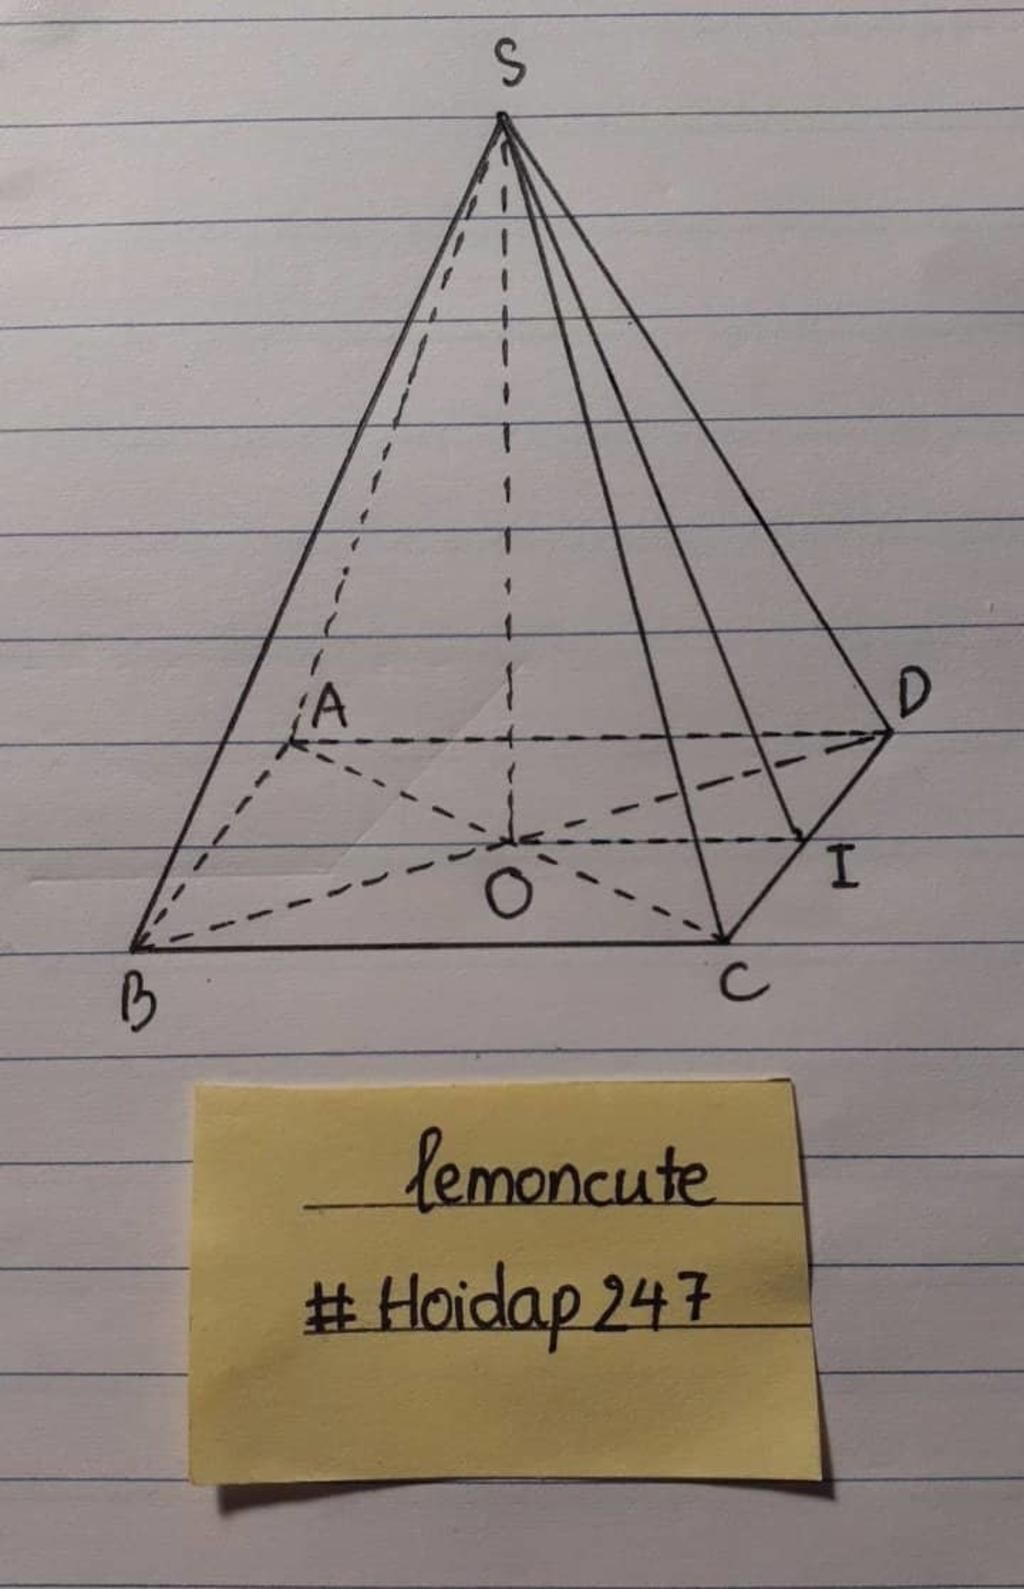 S
A
D
O
I
B
C
lemoncute
# Hoidap 247